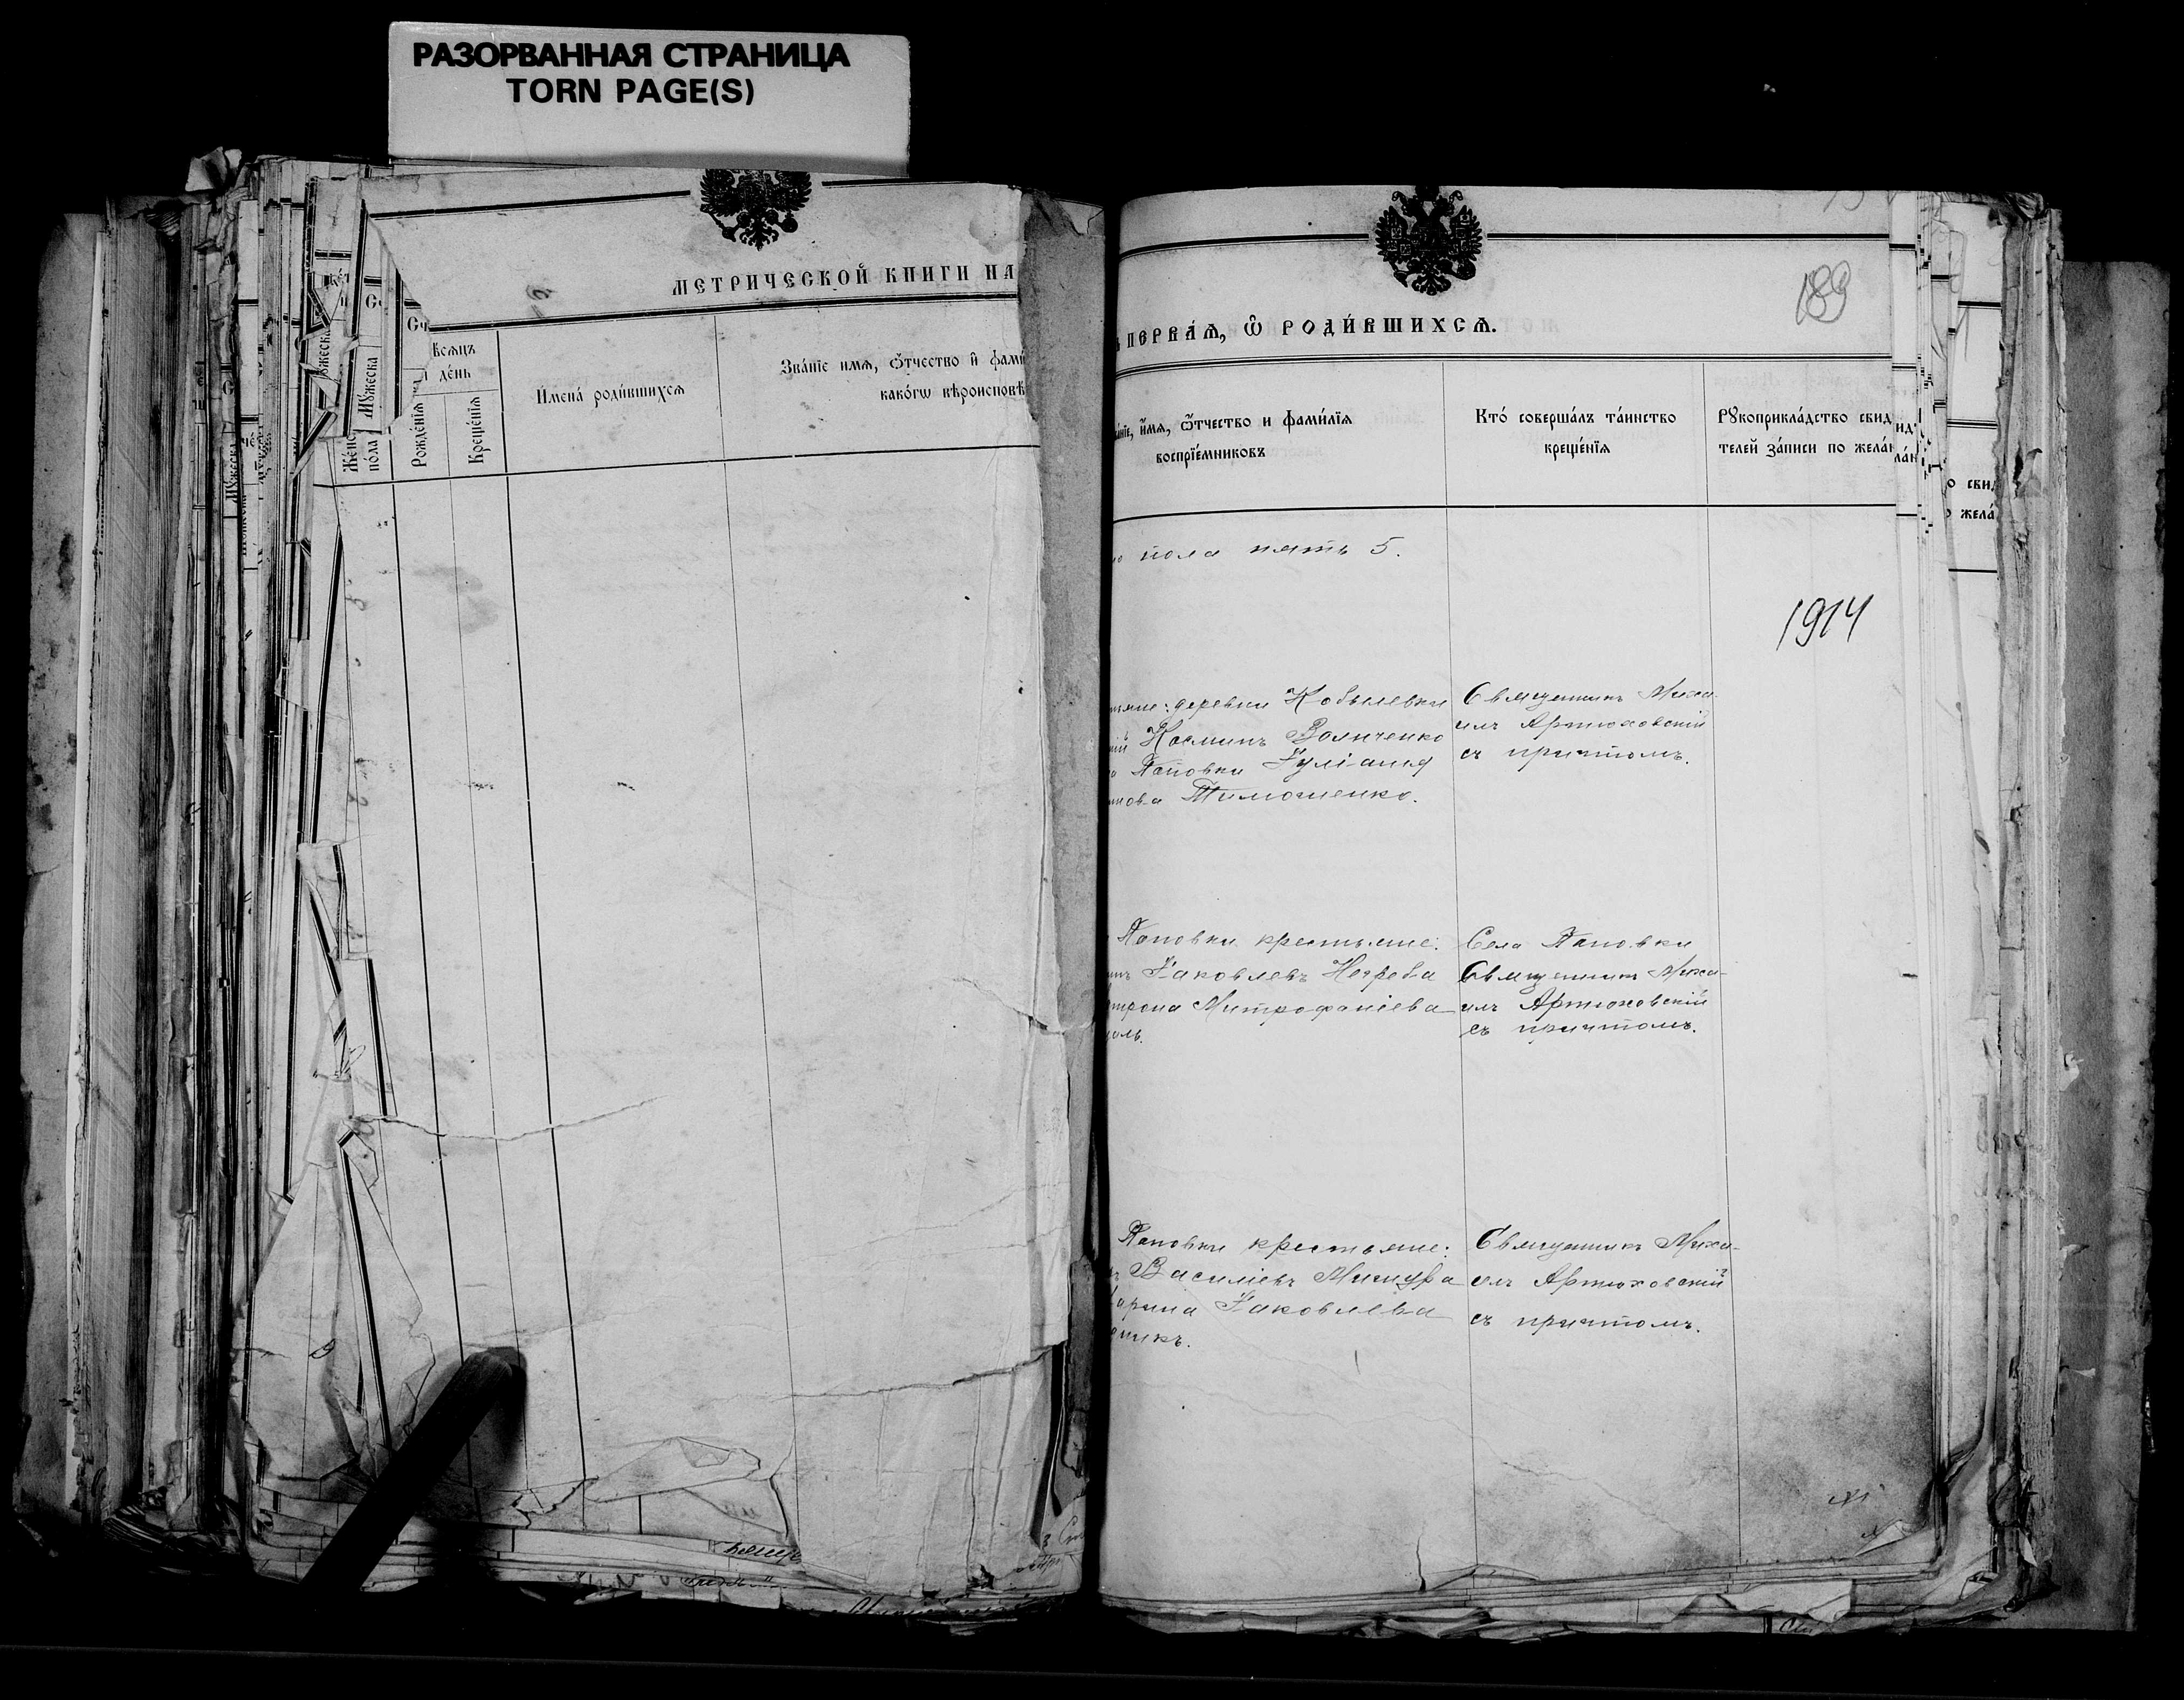 РАЗОРВАННАЯ СТРАНИЦА
TORN PAGE(S)
МЕТРИЧЕСКОЙ КНИГИ НА
Сч
ѣсѧцъ
де́нь
Рожде́нїѧ
Креще́нїѧ
Мꙋжеска
Же́нс
по́ла
И́мена роди́вшихсѧ
Зва́нїе имѧ, ѻ҆́тчество и҆ фами
како́гѡ вѣроисповѣ
ПЕРВА́Ѧ, Ѡ҆ РОДИ́ВШИХСѦ.
189
и҆́мѧ, ѻ҆́тчество и фами́лїѧ
воспрїе́мниковъ
Кто́ соверша́лъ та́инство
креще́нїѧ
Рꙋкоприкла́дство свид
телей за́писи по жела́н
пола пять 5.
1914
деревни Кобылевки
Косминъ Волченко
Поповки Іуліанія
Тимошенко.
Священникъ Миха-
илъ Артюховскій
съ причтомъ.
Поповки крестьяне:
Іаковлевъ Негреба
Митрофаніева
Села Поповки
Священникъ Миха-
илъ Артюховскій
съ причтомъ.
Поповки крестьяне:
Василіевъ Мишура
Іаковлева
Священникъ Миха-
илъ Артюховскій
съ причтомъ.